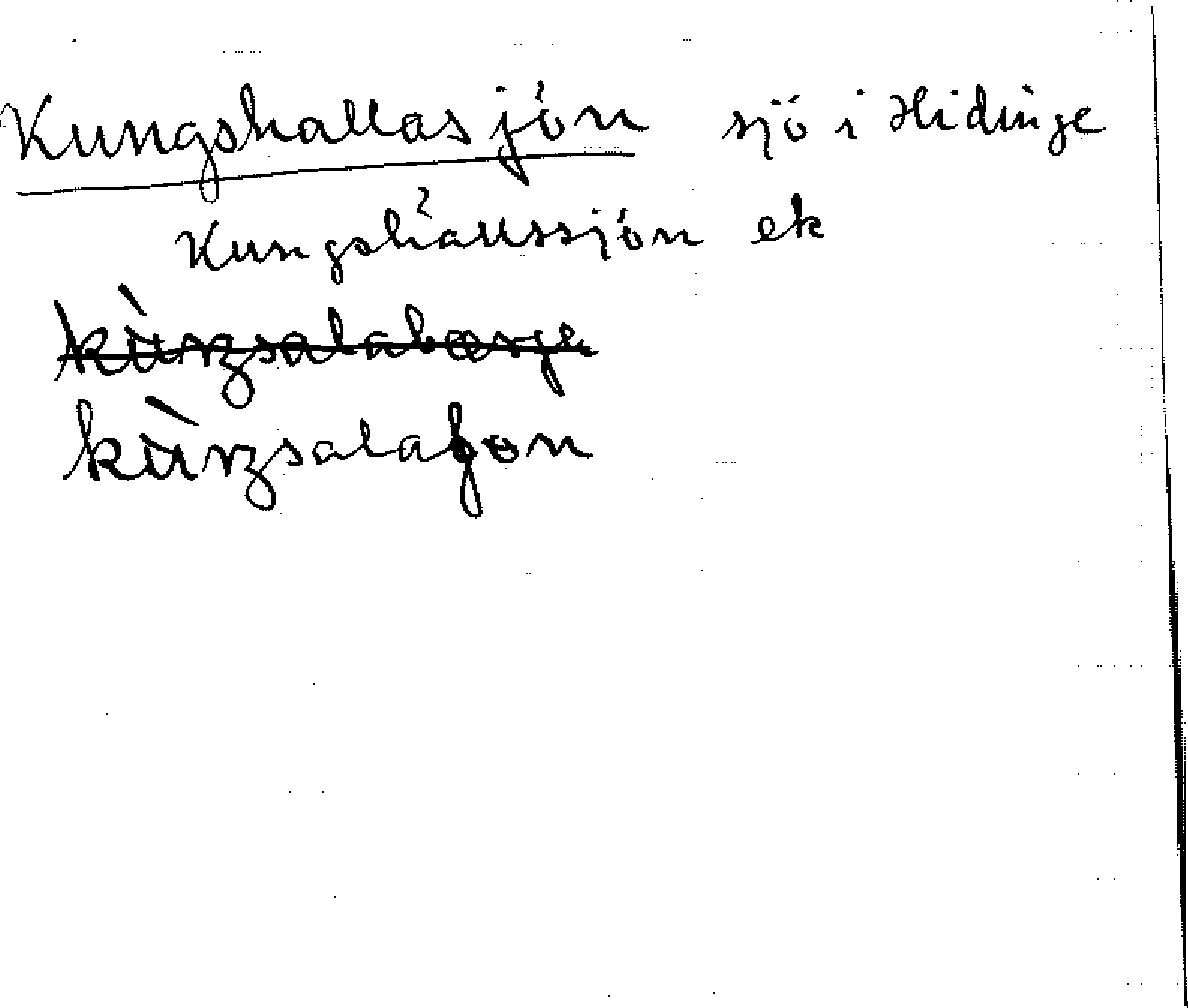 Kungshallasjön sjö i Hidinge
Kungshallssjön ek
kùŋsalabærje
kùŋsalaʃön